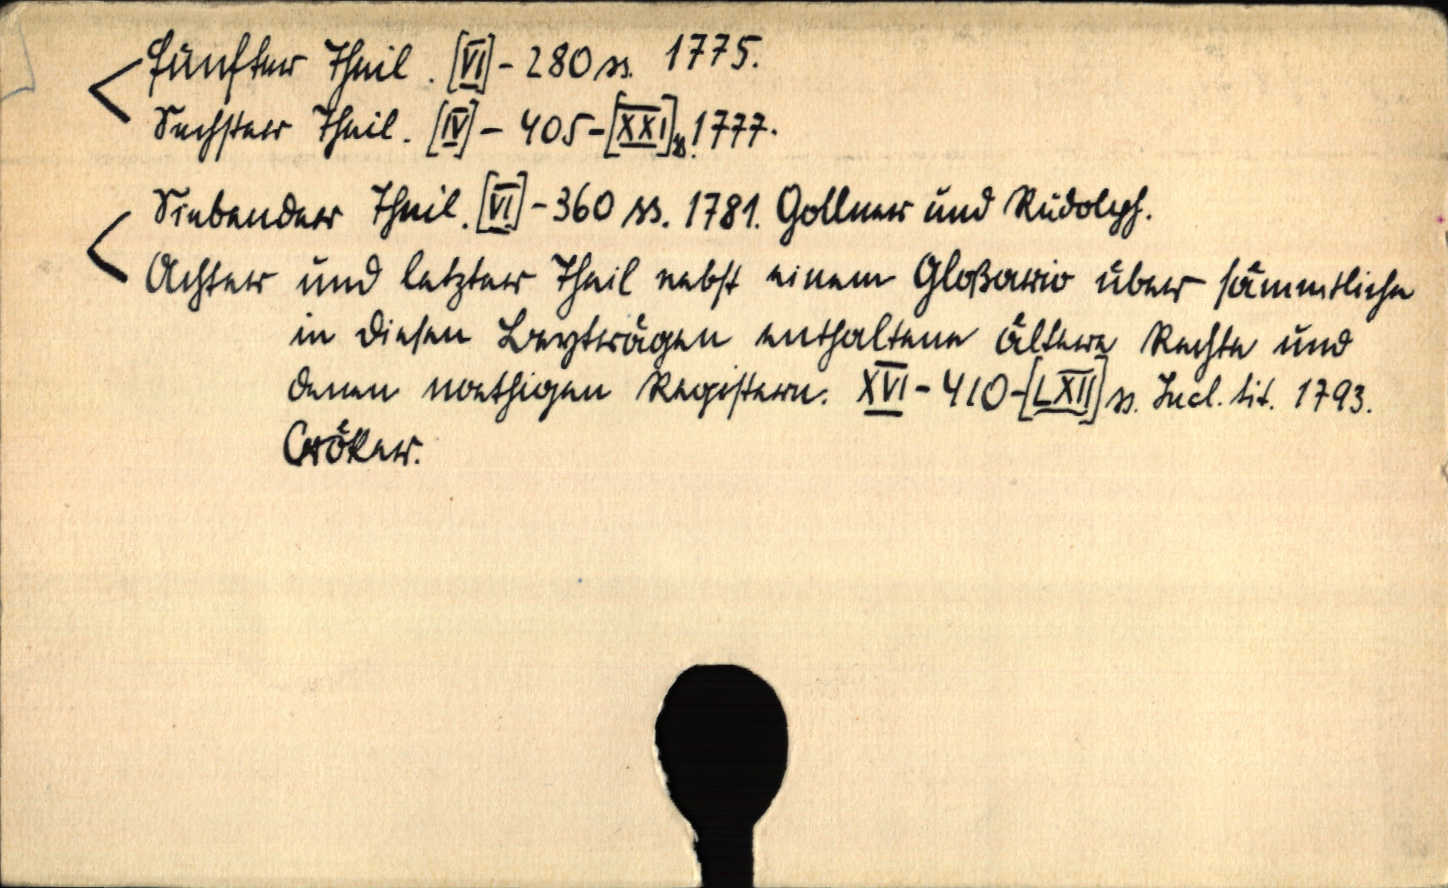 Fünfter Theil. [VI] - 280 ss. 1775.
Sechster Theil. [IV] - 405 - [XXI] ss. 1777.
Siebender Theil. [VI] - 360 ss. 1781. Gollner und Rudolph.
Achter und letzter Theil nebst einem Gloßario über sämmtliche
in diesen Beyträgen enthaltene ältere Rechte und
denen noethigen Registern. XVI - 410 - [LXII] ss. Incl. tit. 1793.
Cröker.